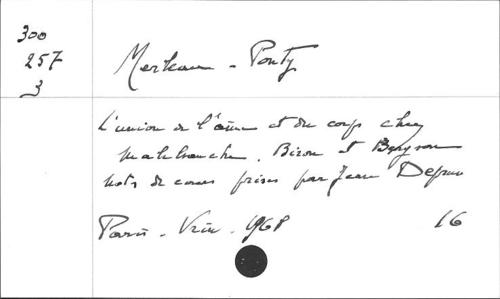 300
257
3
Merleau - Ponty
L'union de l'âme et du corps chez
Malebranche, Biran et Bergson
Notes de cours prises par Jean Deprun
Paris - Vrin - 1968 16